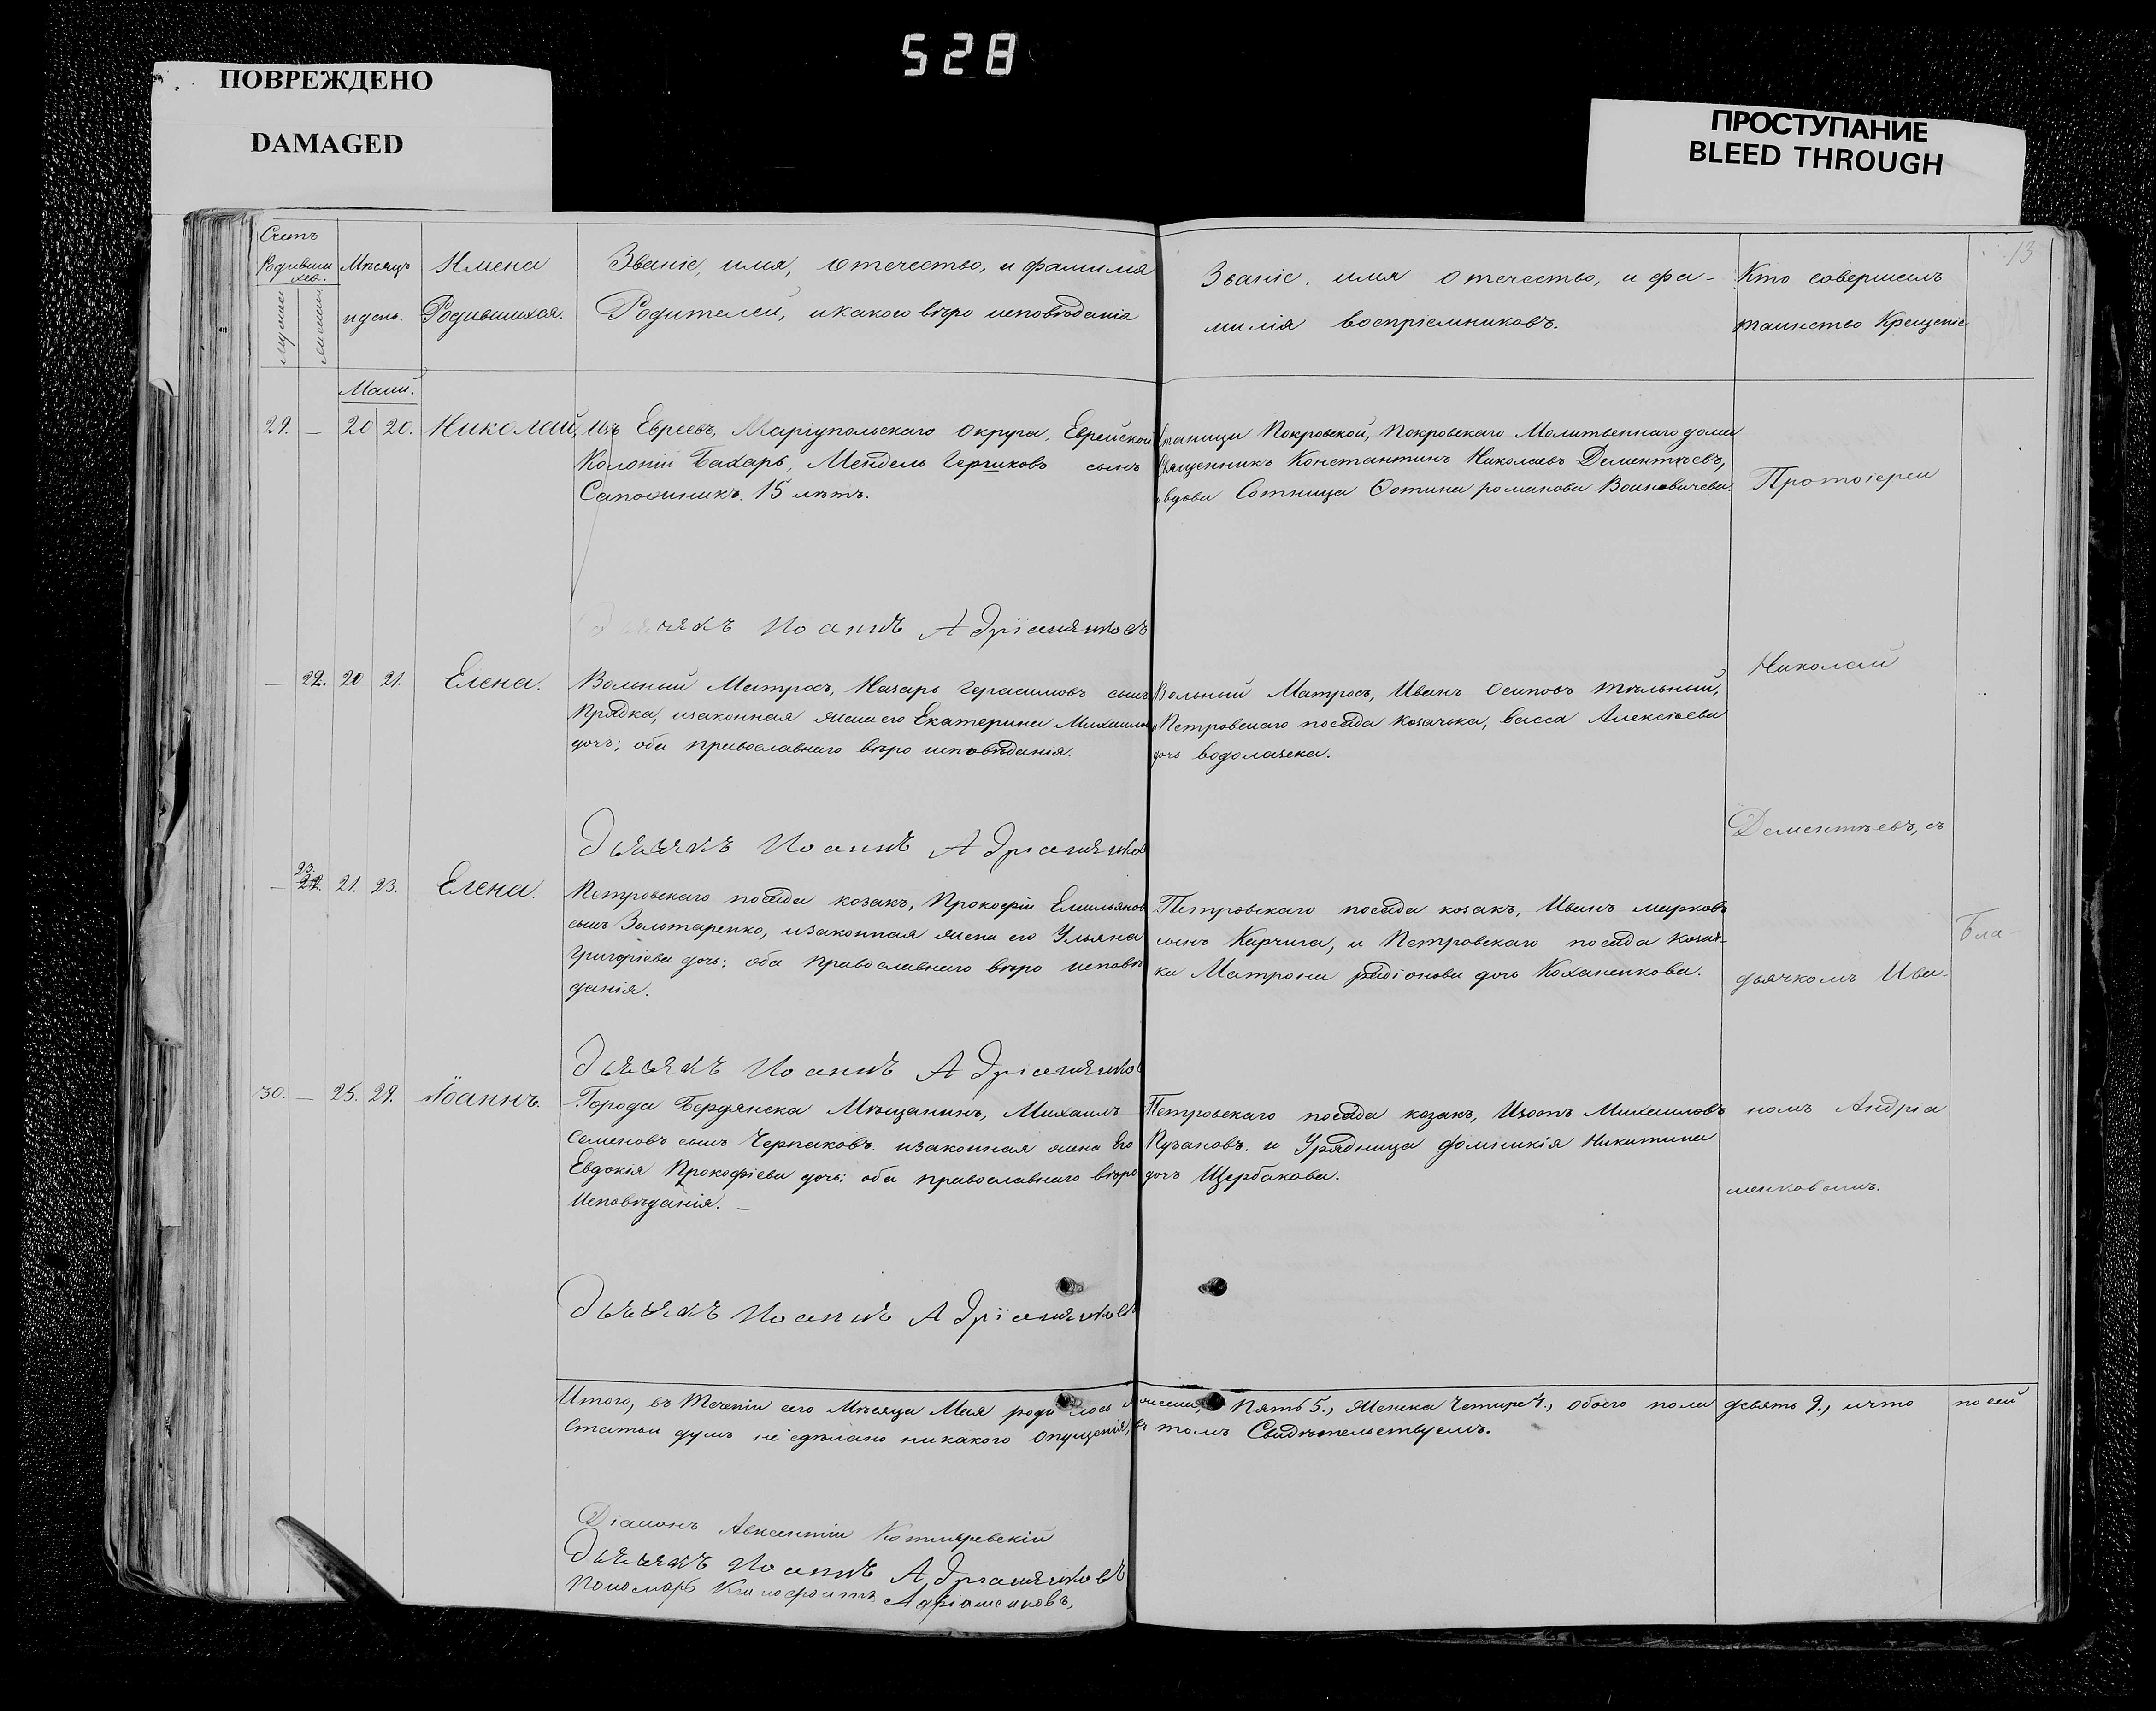 528
ПОВРЕЖДЕНО
DAMAGED
ПРОСТУПАНИЕ
BLEED THROUGH
13
Счетъ
Родивши
хся.
мужеска
женска
Мѣсяцъ
и день.
Имена
Родившихся.
Званіе, имя, отечество, и фамилія
Родителей, и какого вѣро исповѣданія
Званіе, имя отечество, и фа-
милія воспріемниковъ.
Кто совершилъ
таинство Крещеніе
Маій.
29. — 20 20. Николай,
Изъ Евреевъ, Маріупольскаго округа, Еврейской
Колоніи Бахарь, Мендель Гершковъ сынъ
Сапожникъ. 15 лѣтъ.
Станицы Покровской, Покровскаго Молитвеннаго дома
Священникъ Константинъ Николаевъ Дементьевъ,
вдова Сотница романова
Протоіереи
Дьячекъ Иоаннъ Адріаненковъ
— 22. 20 21. Елена.
Вольный Матросъ, Назарь Герасимовъ сынъ
Прядка, изаконная жена его Екатерина Михаилова
дочь; оба православнаго вѣро исповѣданія.
Вольный Матросъ, Иванъ Осиповъ
Петровскаго посада козачка, Васса Алексіева
дочь водолазска.
Николай
Дьячекъ Иоаннъ Адріаненков
Дементьевъ, съ
— 23. 22. 21. 23. Елена.
Петровскаго посада козакъ, Прокофій Емильянов
сынъ Золотаренко, изаконная жена его Ульяна
Григоріева дочь; оба православнаго вѣро исповѣ
данія.
Петровскаго посада козакъ, Иванъ марковъ
сынъ Карчига, и Петровскаго посада козач-
ка Матрона радіонова дочь Коханенкова.
дьячкомъ Ива-
Бла-
Дьячекъ Иоаннъ Адріаненков
30. — 25. 29. Іоаннъ.
Города Бердянска Мѣщанинъ, Михаилъ
Семеновъ сынъ Черпаковъ. изаконная жена Его
Евдокія Прокофіева дочь; оба православнаго вѣро
Исповѣданія. —
Петровскаго посада козакъ, Изотъ Михаиловъ
Пузановъ. и Урядница Никитина
дочь Щербакова.
номъ Андріа
ненковымъ.
Дьячекъ Иоаннъ Адріаненковъ
Итого, въ Теченіи сего Мѣсяца Мая родилось Пять 5., Женска Четыре 4., обоего пола девять 9., ичто по сей
Статьи душъ не сдѣлано никакого опущенія, въ томъ Свидѣтельствуемъ.
Діаконъ Авксентіи Котляревскій
Дьячекъ Иоаннъ Адріаненковъ
Пономарь Адріаненковъ,